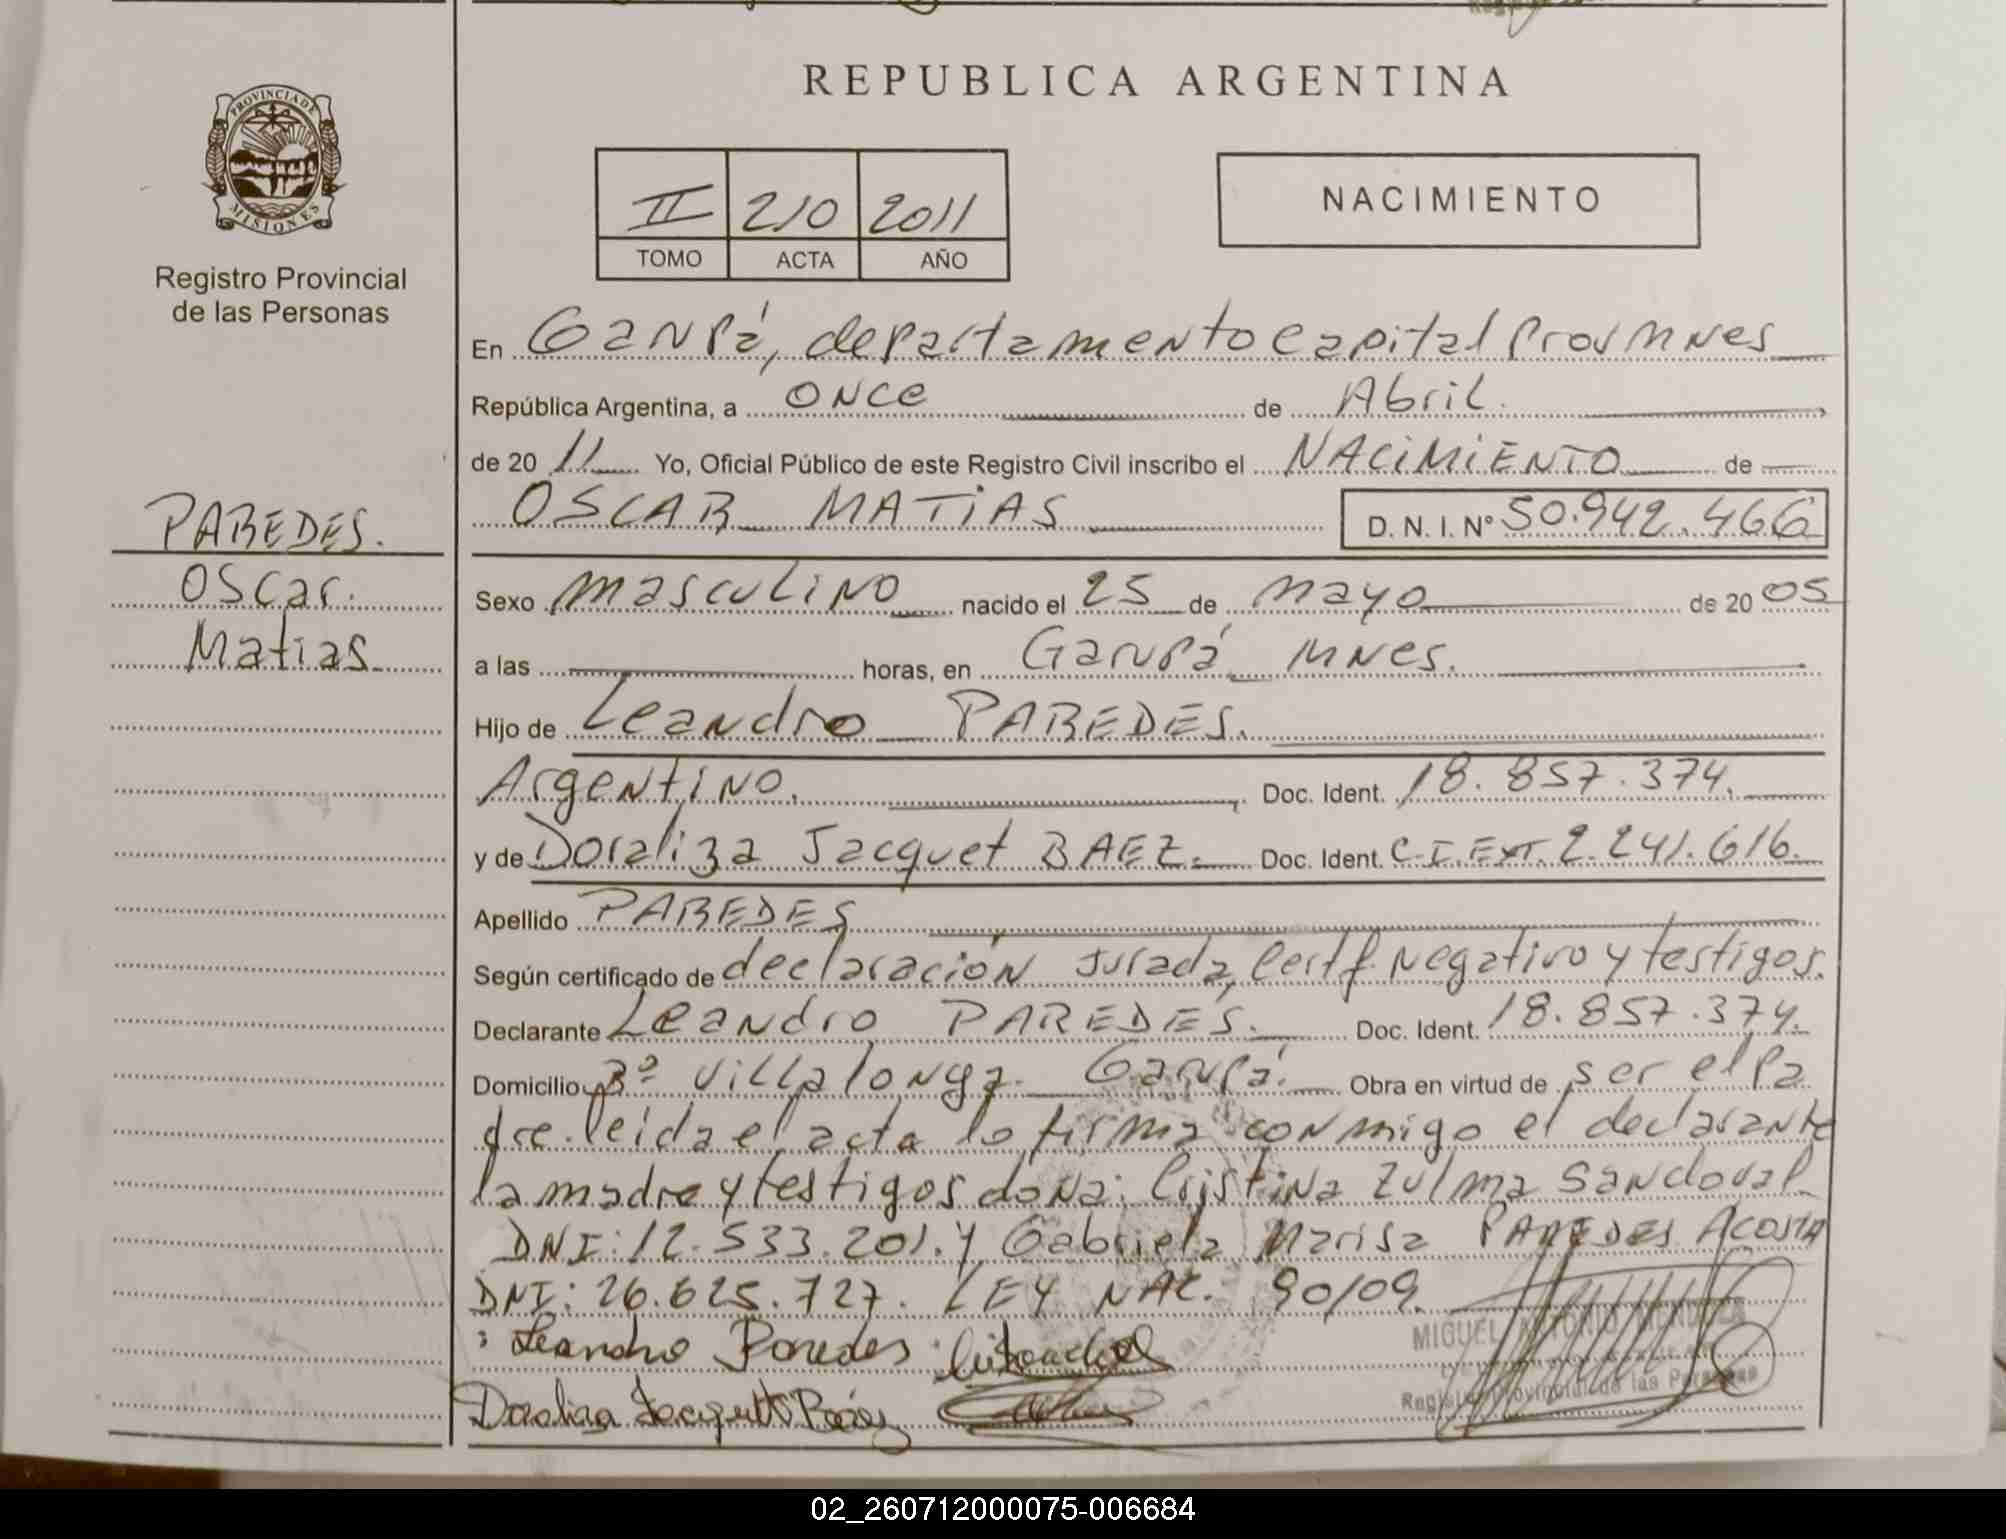 REPUBLICA ARGENTINA
PROVINCIA DE
MISIONES
Registro Provincial
de las Personas
II 210 2011
TOMO ACTA AÑO
NACIMIENTO
En Garupá, departamento capital Prov Mnes
República Argentina, a once de Abril.
de 20 11 Yo, Oficial Público de este Registro Civil inscribo el NACIMIENTO de
OSCAR MATIAS D. N. I. N° 50.942.466
PAREDES.
Oscar.
Matias
Sexo masculino nacido el 25 de mayo de 20 05
a las horas, en Garupá Mnes.
Hijo de Leandro PAREDES.
Argentino. Doc. Ident. 18.857.374.
y de Doraliza Jacquet BAEZ. Doc. Ident. C.I. Ext. 2.241.616.
Apellido PAREDES
Según certificado de declaración Jurada, Certf. Negativo y testigos.
Declarante Leandro PAREDES. Doc. Ident. 18.857.374.
Domicilio Bº Villalonga. Garupá. Obra en virtud de ser el Pa
dre. leida el acta lo firma conmigo el declarante
la madre y testigos doña: Cristina Zulma Sandoval
DNI: 12.533.201. Y Gabriela Marisa PAREDES ACOSTA
DNI: 26.625.727. LEY NAC. 90/09.
Leandro Paredes
MIGUEL ANTONIO MENDOZA
Registro Provincial de las Personas
Doraliza Jacquett Báez
02_260712000075-006684